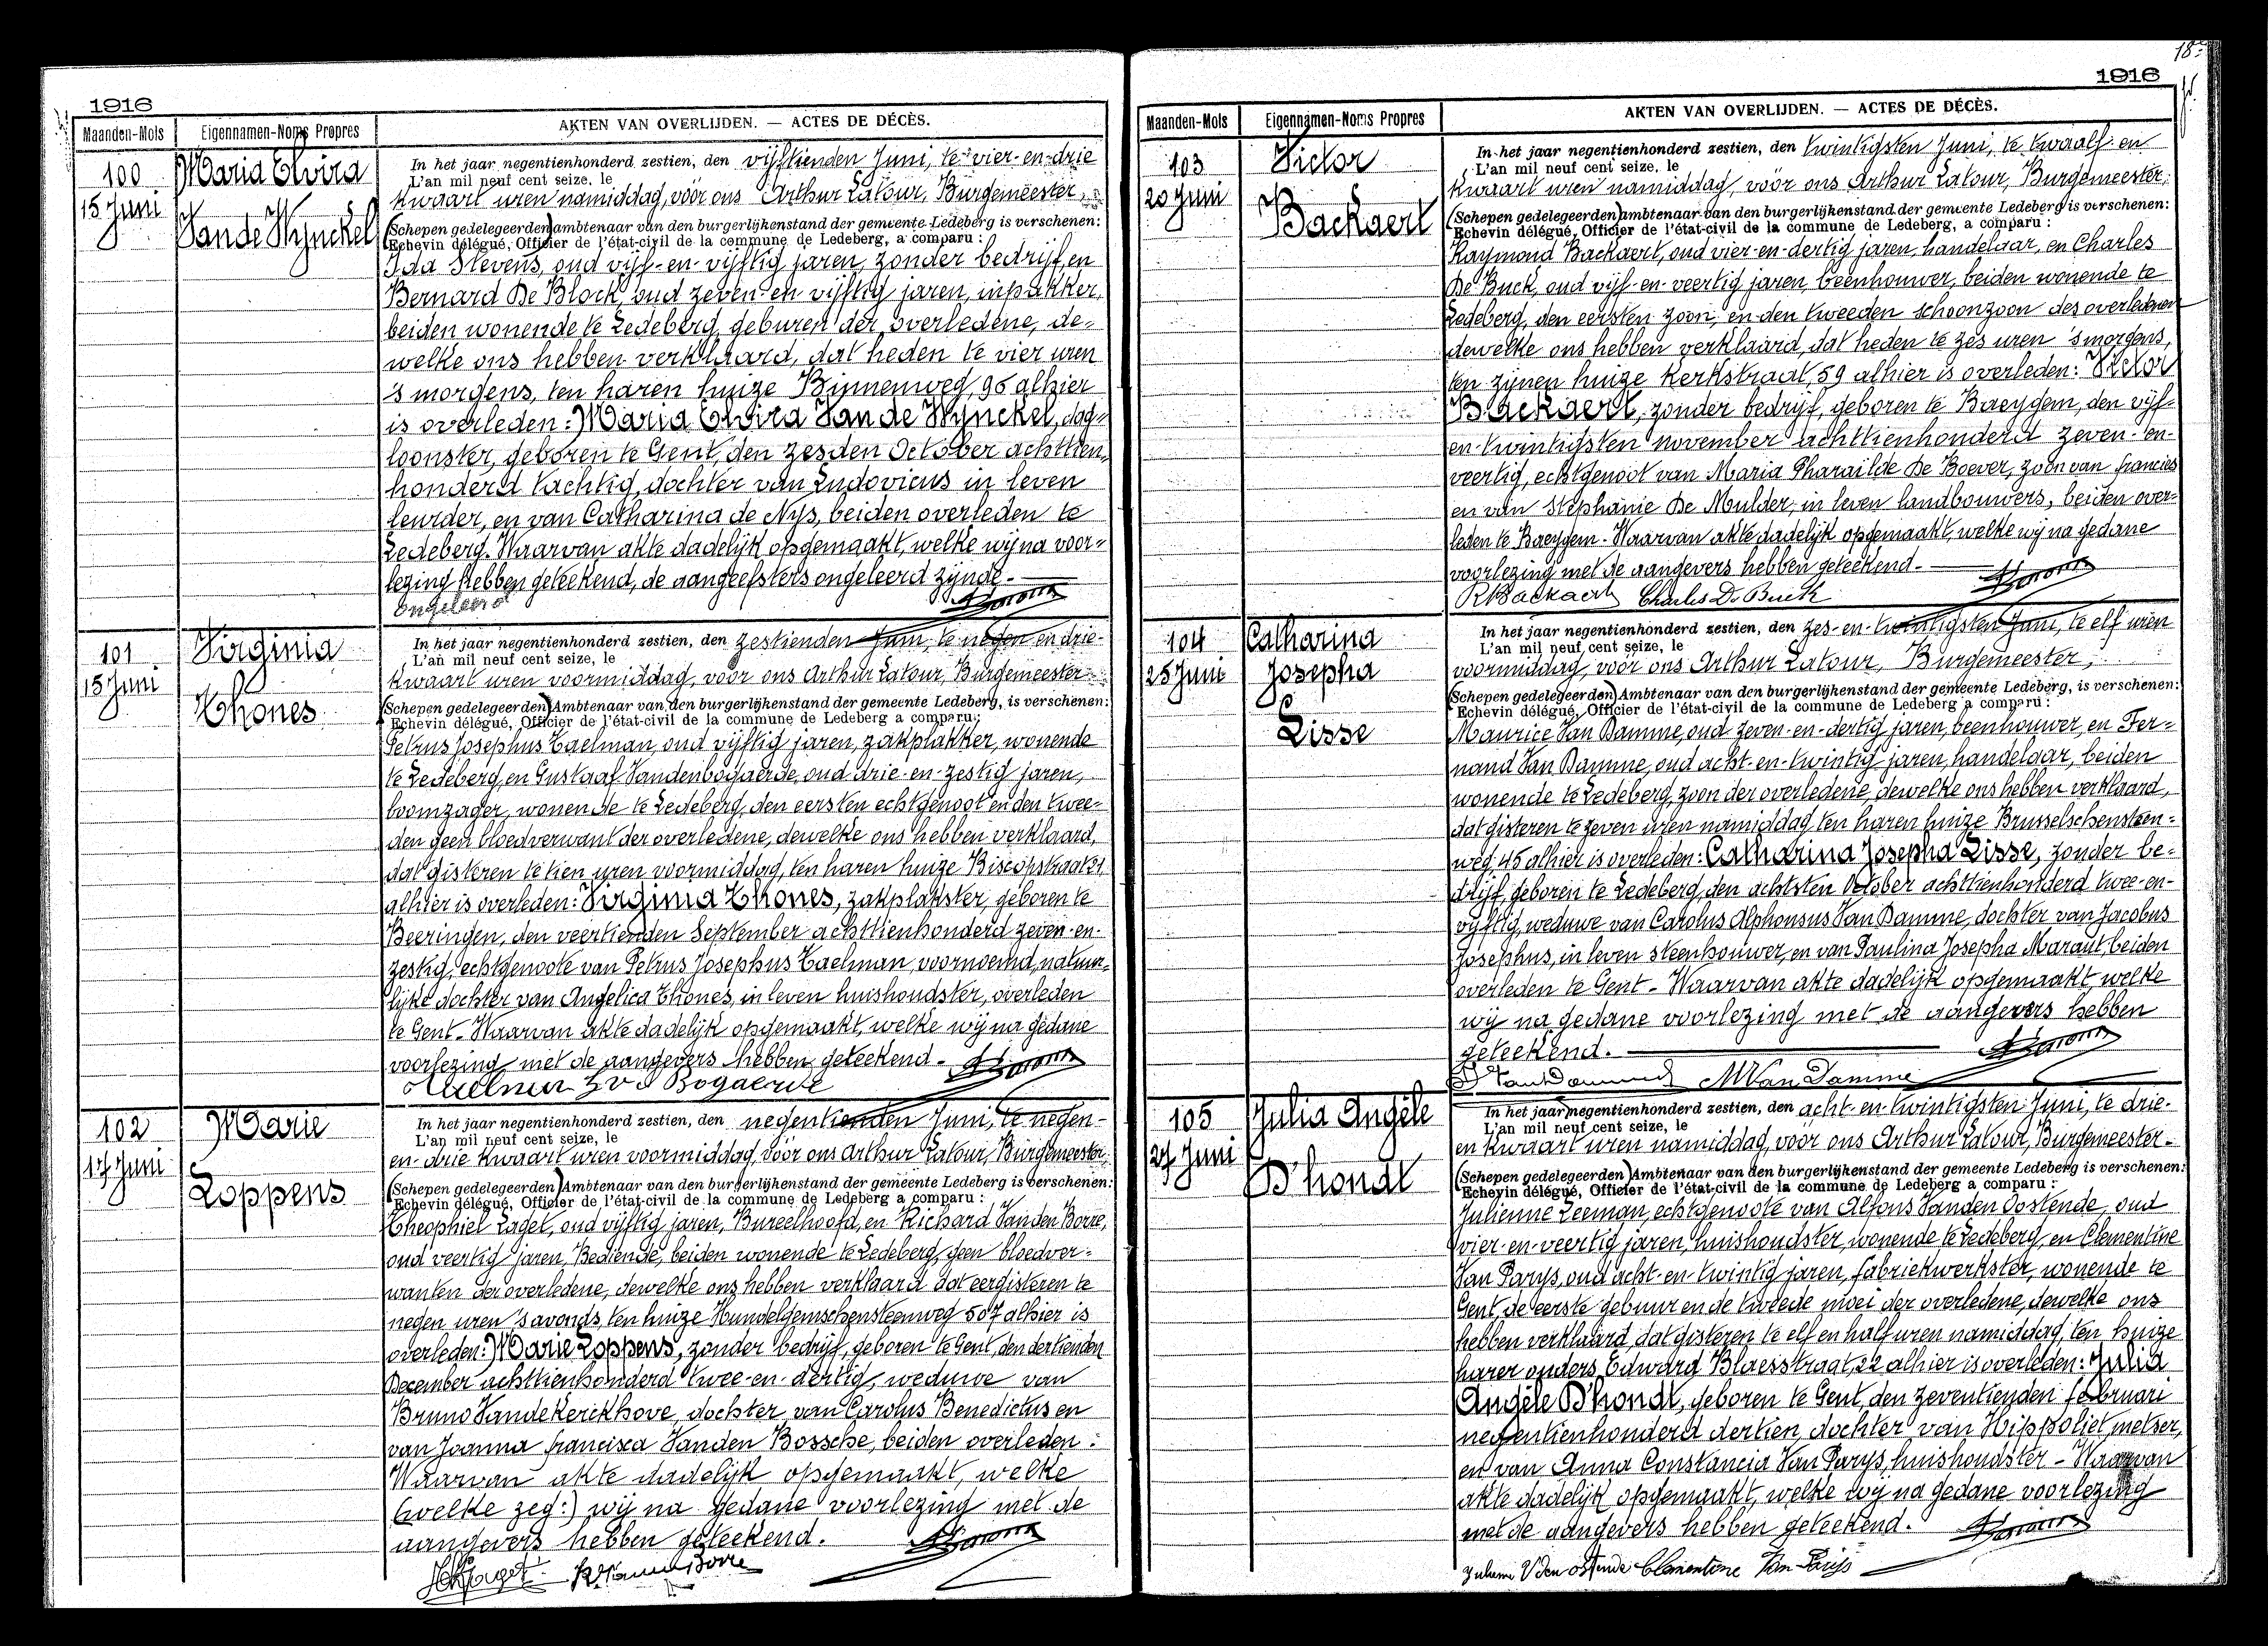 1916
Maanden-Mols
Eigennamen-Noms Propres
AKTEN VAN OVERLIJDEN. — ACTES DE DÉCÈS.
100
15 Juni
Maria Elvira
Van de Wynckel
In het jaar negentienhonderd zestien, den vijftienden Juni, te vier-en-drie
L'an mil neuf cent seize, le
kwaart uren namiddag, vóór ons Arthur Latour, Burgemeester,
(Schepen gedelegeerden) ambtenaar van den burgerlijkenstand der gemeente Ledeberg is verschenen:
Echevin délégué, Officier de l'état-civil de la commune de Ledeberg, a comparu :
Ida Stevens, oud vijf-en-vijftig jaren, zonder bedrijf, en
Bernard De Block, oud zeven-en vijftig jaren, inpakker,
beiden wonende te Ledeberg, geburen der overledene, de-
welke ons hebben verklaard, dat heden te vier uren
's morgens, ten haren huize Binnenweg, 96 alhier
is overleden: Maria Elvira Van de Wynckel, dag-
loonster, geboren te Gent, den zesden October achttien-
honderd tachtig, dochter van Ludovicus in leven
leurder, en van Catharina de Nys, beiden overleden te
Ledeberg. Waarvan akte dadelijk opgemaakt, welke wij na voor-
lezing hebben geteekend, de aangeefsters ongeleerd zijnde.
ongeleerd
101
15 Juni
Virginia
Thones
In het jaar negentienhonderd zestien, den zestienden Juni, te negen en drie-
L'an mil neuf cent seize, le
kwaart uren voormiddag, vóór ons Arthur Latour, Burgemeester
(Schepen gedelegeerden) Ambtenaar van den burgerlijkenstand der gemeente Ledeberg, is verschenen:
Echevin délégué, Officier de l'état-civil de la commune de Ledeberg a comparu:
Petrus Josephus Taelman, oud vijftig jaren, zakplakker, wonende
te Ledeberg, en Gustaaf Vandenbogaerde, oud drie-en-zestig jaren,
boomzager, wonende te Ledeberg, den eersten echtgenoot en den twee-
den geen bloedverwant der overledene, dewelke ons hebben verklaard,
dat gisteren te tien uren voormiddag, ten haren huize Biscopstraat 21,
alhier is overleden: Virginia Thones, zakplakster, geboren te
Beeringen, den veertienden September achttienhonderd zeven-en-
zestig, echtgenoote van Petrus Josephus Taelman, voornoemd, natuur-
lijke dochter van Angelica Thones, in leven huishoudster, overleden
te Gent. Waarvan akte dadelijk opgemaakt, welke wij na gedane
voorlezing met de aangevers hebben geteekend.
Bogaerde
102
17 Juni
Marie
Loppens
In het jaar negentienhonderd zestien, den negentienden Juni, te negen-
L'an mil neuf cent seize, le
en-drie kwaart uren voormiddag, vóór ons Arthur Latour, Burgemeester,
(Schepen gedelegeerden) Ambtenaar van den burgerlijkenstand der gemeente Ledeberg is verschenen:
Echevin délégué, Officier de l'état-civil de la commune de Ledeberg a comparu :
Theophiel Laget, oud vijftig jaren, Bureelhoofd, en Richard Vanden Borre,
oud veertig jaren, Bediende, beiden wonende te Ledeberg, geen bloedver-
wanten der overledene, dewelke ons hebben verklaard dat eergisteren te
negen uren 's avonds, ten huize Hundelgemschensteenweg 507 alhier is
overleden: Marie Loppens, zonder bedrijf, geboren te Gent, den dertienden
December achttienhonderd twee-en-dertig, weduwe van
Bruno Vandekerckhove, dochter van Carolus Benedictus en
van Joanna francisca Vanden Bossche, beiden overleden :
Waarvan akte dadelijk opgemaakt, welke
(welke zeg:) wij na gedane voorlezing met de
aangevers hebben geteekend.
18
1916
Maanden-Mols
Eigennamen-Noms Propres
AKTEN VAN OVERLIJDEN. — ACTES DE DÉCÈS.
103
20 Juni
Victor
Backaert
In het jaar negentienhonderd zestien, den twintigsten Juni, te twaalf en
L'an mil neuf cent seize, le
kwaart uren namiddag, vóór ons Arthur Latour, Burgemeester,
(Schepen gedelegeerden) ambtenaar van den burgerlijkenstand der gemeente Ledeberg is verschenen:
Echevin délégué, Officier de l'état-civil de la commune de Ledeberg, a comparu :
Raymond Backaert, oud vier-en-dertig jaren, handelaar, en Charles
De Buck, oud vijf-en-veertig jaren, beenhouwer, beiden wonende te
Ledeberg, den eersten zoon, en den tweeden schoonzoon des overledenen
dewelke ons hebben verklaard, dat heden te zes uren 's morgens,
ten zijnen huize Kerkstraat, 59 alhier is overleden: Victor
Backaert, zonder bedrijf, geboren te Baeygem, den vijf-
en-twintigsten november achttienhonderd zeven-en-
veertig, echtgenoot van Maria Pharaïlde De Boever, zoon van francies
en van Stephanie De Mulder, in leven landbouwers, beiden over-
leden te Baeygem. Waarvan akte dadelijk opgemaakt, welke wij na gedane
voorlezing met de aangevers hebben geteekend.
R Backaert Charles De Buck
104
25 Juni
Catharina
Josepha
Lisse
In het jaar negentienhonderd zestien, den zes-en-twintigsten Juni, te elf uren
L'an mil neuf cent seize, le
voormiddag, vóór ons Arthur Latour, Burgemeester,
(Schepen gedelegeerden) Ambtenaar van den burgerlijkenstand der gemeente Ledeberg, is verschenen:
Echevin délégué, Officier de l'état-civil de la commune de Ledeberg a comparu :
Maurice Van Damme, oud zeven-en-dertig jaren, beenhouwer, en Fer-
nand Van Damme, oud acht-en-twintig jaren, handelaar, beiden
wonende te Ledeberg, zoon der overledene, dewelke ons hebben verklaard,
dat gisteren te zeven uren namiddag ten haren huize Brusselschensteen-
weg, 45 alhier is overleden: Catharina Josepha Lisse, zonder be-
drijf, geboren te Ledeberg, den achtsten October achttienhonderd twee-en-
vijftig, weduwe van Carolus Alphonsus Van Damme, dochter van Jacobus
Josephus, in leven steenhouwer, en van Paulina Josepha Maraut, beiden
overleden te Gent. Waarvan akte dadelijk opgemaakt, welke
wij na gedane voorlezing met de aangevers hebben
geteekend.
M Van Damme
105
27 Juni
Julia Angèle
D'hondt
In het jaar negentienhonderd zestien, den acht-en-twintigsten Juni, te drie-
L'an mil neuf cent seize, le
en kwaart uren namiddag, vóór ons Arthur Latour, Burgemeester.
(Schepen gedelegeerden) Ambtenaar van den burgerlijkenstand der gemeente Ledeberg is verschenen:
Echevin délégué, Officier de l'état-civil de la commune de Ledeberg a comparu :
Julienne Leeman, echtgenoote van Alfons Vanden Oostende, oud
vier-en-veertig jaren, huishoudster, wonende te Ledeberg, en Clementine
Van Parys, oud acht-en-twintig jaren, fabriekwerkster, wonende te
Gent, de eerste gebuur en de tweede moei der overledene, dewelke ons
hebben verklaard, dat gisteren te elf en half uren namiddag, ten huize
harer ouders, Edward Blaesstraat, 22 alhier is overleden: Julia
Angèle D'hondt, geboren te Gent, den zeventienden februari
negentienhonderd dertien, dochter van Hippoliet, metser,
en van Anna Constancia Van Parys, huishoudster - Waarvan
akte dadelijk opgemaakt, welke wij na gedane voorlezing
met de aangevers hebben geteekend.
Clementine Van Parijs